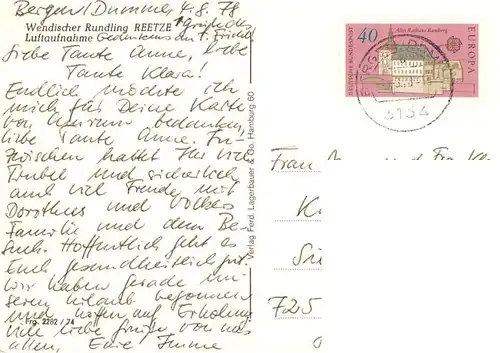 Bergen/Dumme, 4.8.78
Wendischer Rundling REETZE
Luftaufnahme
Liebe Tante Anne, liebe
Tante Klara!
Endlich möchte ich
mich für Deine Karte
von bedanken,
liebe Tante Anne. In-
zwischen hattet Ihr viel
Trubel und sicherlich
auch viel Freude mit
Dorothees und Volkers
Familie und dem Be-
such. Hoffentlich geht es
Euch gesundheitlich gut.
Wir haben gerade un-
seren Urlaub begonnen
und hoffen auf Erholung
Viele liebe Grüße von uns
allen, Eure Imme
Frg. 2282 / 74
Verlag Ferd. Lagerbauer & Co., Hamburg 60
Altes Rathaus Bamberg
40
DEUTSCHE BUNDESPOST
EUROPA
3134
Frau